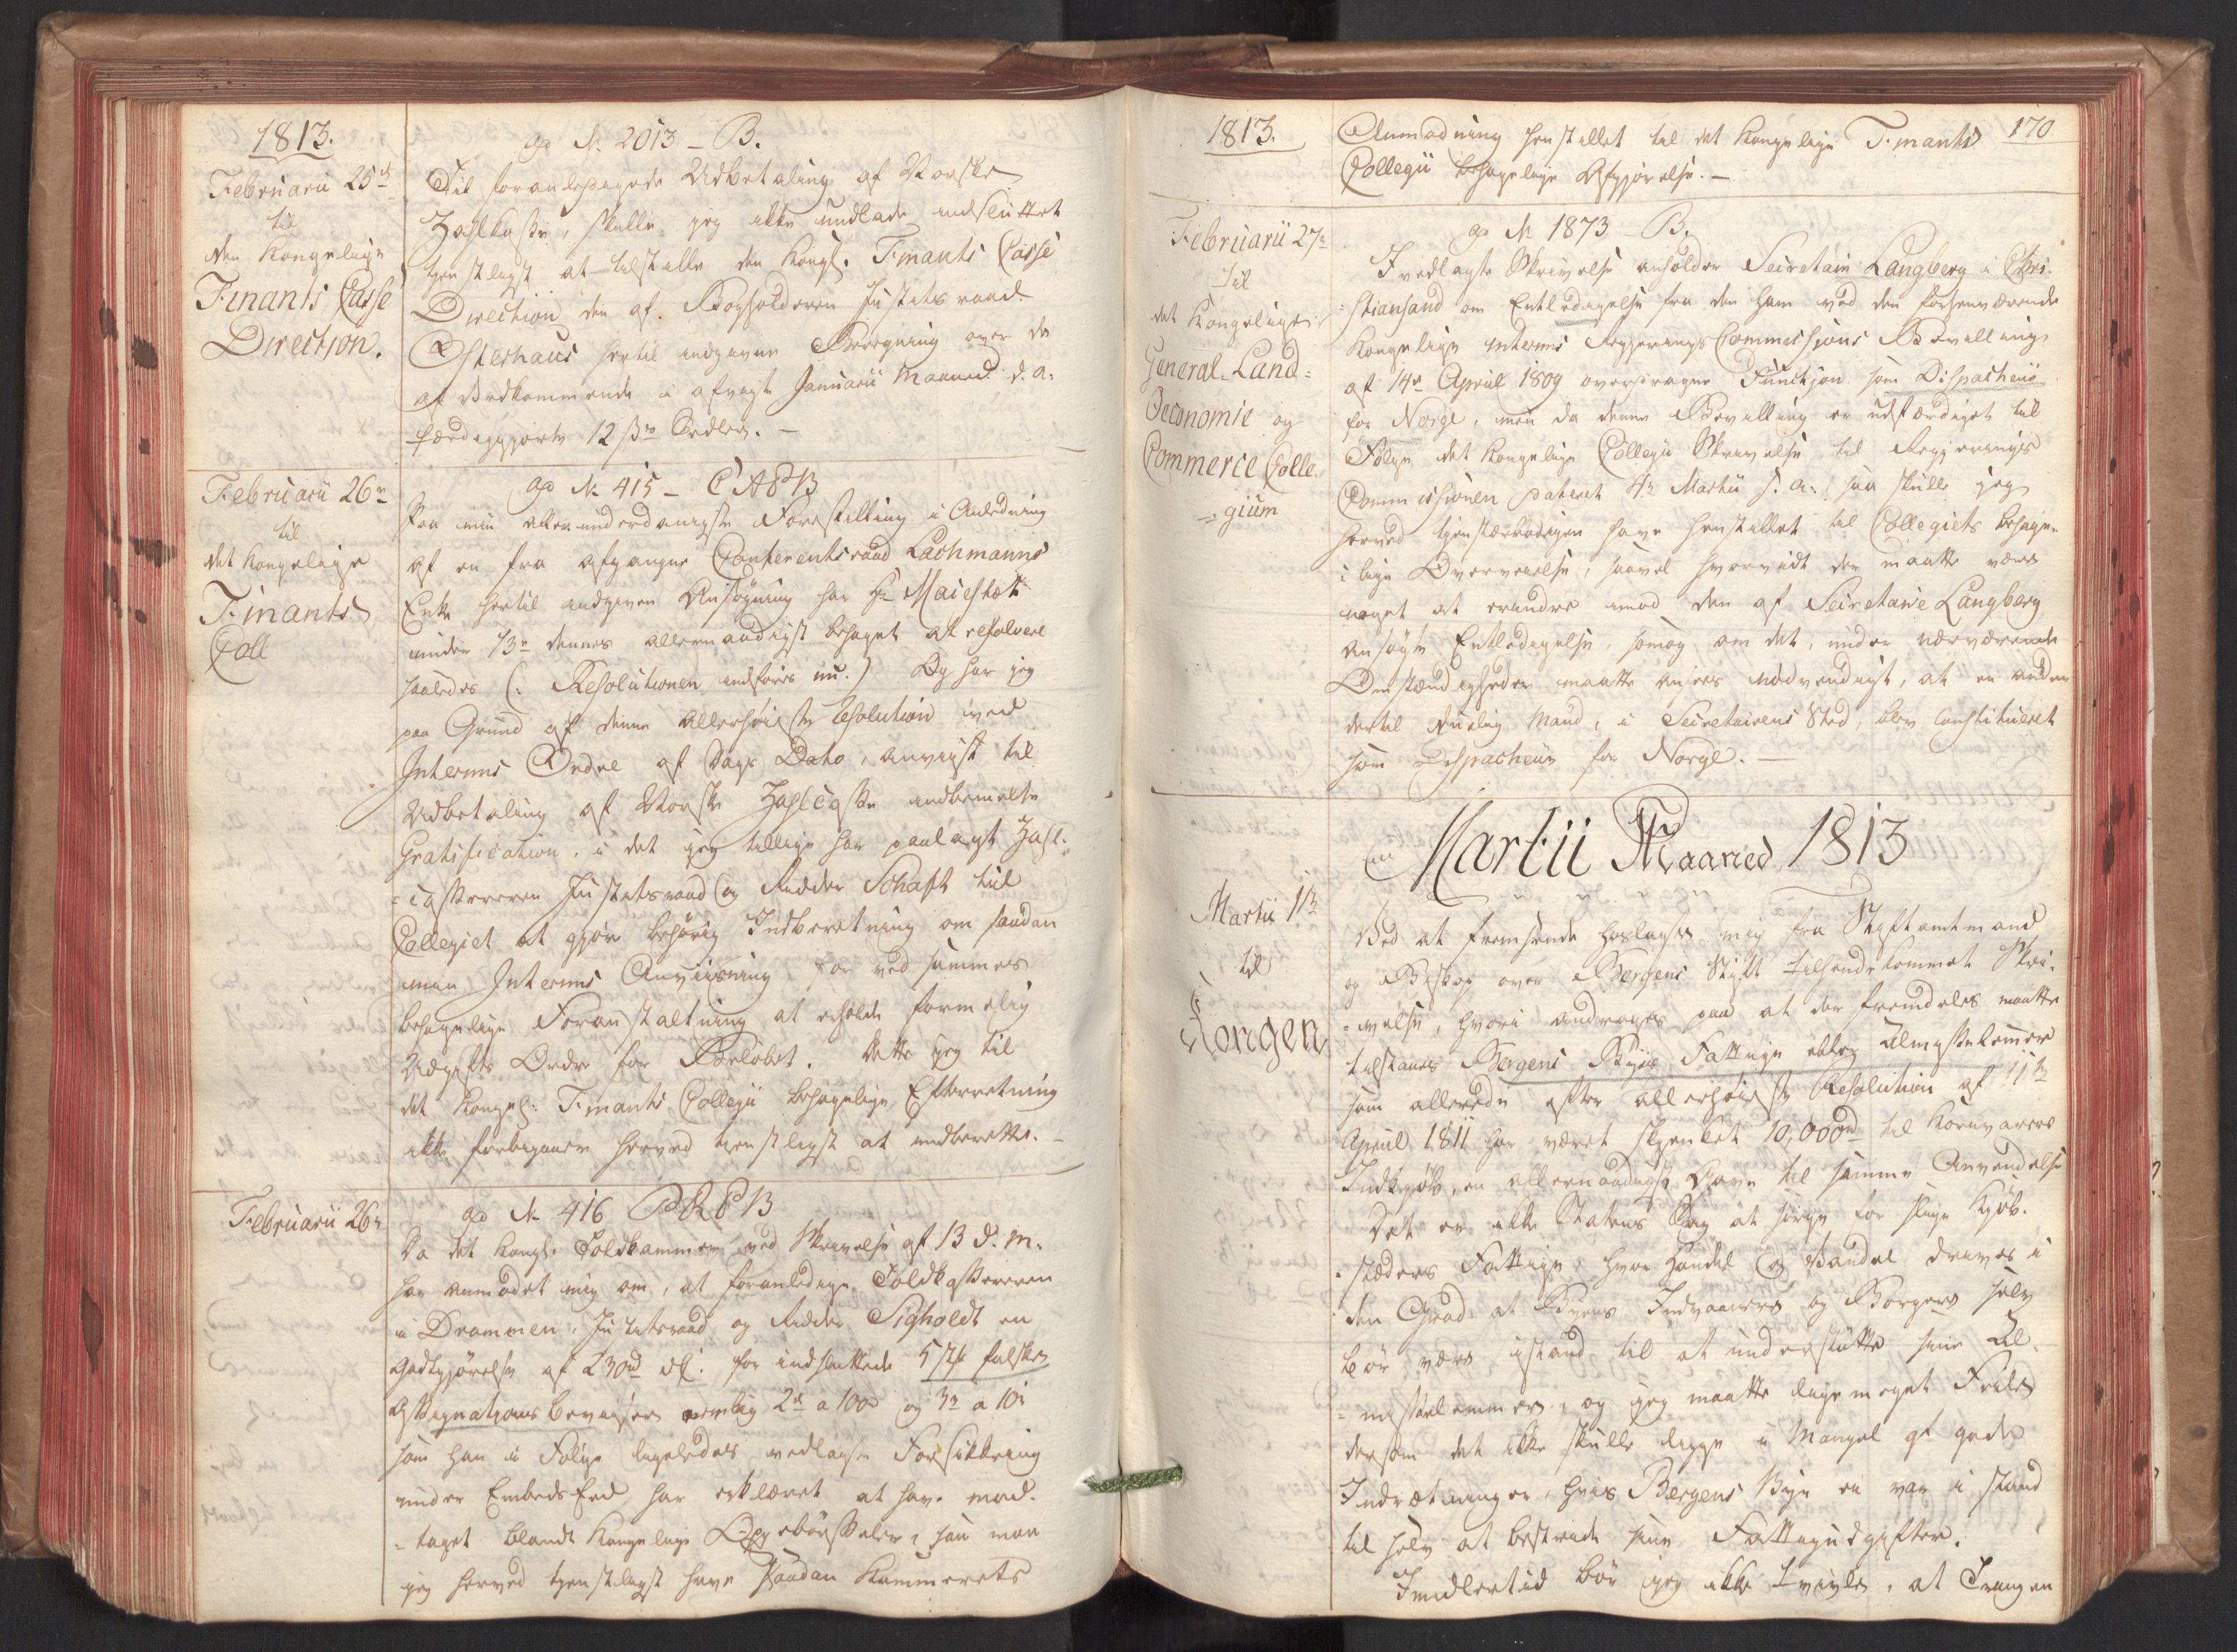 1813.
Februarii 25de
til
den Kongelige
Finants Casse
Direction.
ad No 2013 - B.
Til foranledigede Udbetaling af Norske
Zahlkasse, skulle jeg ikke undlade indsluttet
tjenstligst at tilstille den Kongl. Finants Casse
Direction den af Bogholderen Justitsraad
Osterhaus hertil indgivne Beregning over de
af Vedkommende i afvigte Januarii Maaned d. a.
færdiggjorte 12
Februarii 26de
til
det Kongelige
Finants
Coll
ad No 415 -
Paa min allerunderdanigste Forestilling i Anledning
af en fra afgangne Conferentsraad Lachmanns
Enke hertil indgiven Ansøgning har Hs Maiestæt
under 13de dennes allernaadigst behaget at resolvere
saaledes (: Resolutionen indføres nu.) Og har jeg
paa Grund af denne allerhøieste Resolution ved
Interims Ordre af Dags Dato, anviist til
Udbetaling af Norske Zahlcasse indbemelte
Gratification, i det jeg tillige har paalagt Zahl-
-casserer Justitsraad og Ridder Schaft til
Collegiet at gjøre behørig Indberetning om saadan
min Interims Anviisning for ved sammes
behagelige Foranstaltning at erholde formelig
Udgifts Ordre for Beløbet. Dette jeg til
det Kongel: Finants Collegii behagelige Efterretning
ikke forbigaaer herved tienstligst at indberette. -
Februarii 26de
ad No 416
Da det Kongl. Toldkammer ved Skrivelse af 13 d. M.
har anmodet mig om, at foranledige Toldkassereren
i Drammen, Justitsraad og Ridder Sigholdt en
Godtgjørelse af 230rd for indsendte 5 stk falske
Assignations Beviser nemlig 2de a 100 og 3de a 10
som han i Følge ligeledes vedlagte Forsikkring
under Embedsed har erklæret at have mod-
-taget blandt Kongelige Oppebørseler, saa maa
jeg herved tjenstligst have saadan Kammerets
1813.
170
Anmodning henstillet til det Kongelige Finants
Collegii behagelige Afgjørelse. -
Februarii 27de
til
det Kongelige
General-Land-
Oeconomie og
Commerce Colle-
-gium
ad No 1873 B.
I vedlagte Skrivelse anholder Secretair Langberg i Chri-
-stiansand om Entledigelse fra den ham ved den forhenværende
Kongelige interims Regjerings Commissions Bevilling
af 14de April 1809 overdragne Function som Dispacheur
for Norge, men da denne Bevilling er udfærdiget til
Følge det Kongelige Collegii Skrivelse til Regjerings
Commissionen dateret 4de Martii s. a. saa skulle jeg
herved tjenstærbødigen have henstillet til Collegiets behage-
-lige Overveielse, saavel hvorvidt der maatte være
noget at erindre imod den af Secretaire Langberg
ansøgte Entledigelse, som og om det, under nærværende
Omstændigheder maatte ansees nødvendigt, at en anden
dertil duelig Mand, i Secretairens Sted, blev constitueret
som Dispacheur for Norge. -
Martii Maaned 1813
Martii 1ste
til
Kongen
Ved at fremsende hoslagte mig fra Stiftamtmand
og Biskop over Bergens Stift tilhændekommet Skri-
-velse, hvori andrages paa at der fremdeles maatte
tilstaaes Bergens Byes Fattige eller Almisselemmer
som allerede efter allerhøieste Resolution af 11te
April 1811 har været skjenket 10,000rd til Kornvarers
Indkjøb, en allernaadigst Gave til samme Anvendelse
Det er ikke Statens Sag at sørge for slige Kjøb-
-stæders Fattige, hvor Handel og Vandel drives i
den Grad at Byens Indvaanere og Borgere selv
bør være istand til at understøtte sine Al-
-misselemmer, og jeg maatte lige meget feile
dersom det ikke skulle ligge i Mangel af gode
Indretninger, hvis Bergens Bye ei var i stand
til selv at bestride sine Fattigudgifter.
Imidlertid bør jeg ikke tvivle, at Trangen